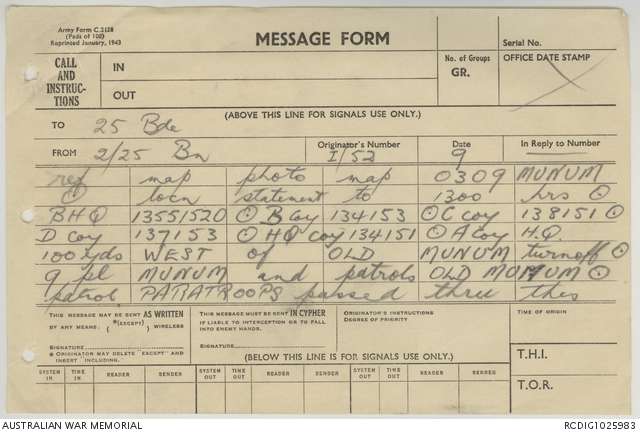 Army Form C.2128
(Pads of 100)
Reprinted January, 1943
MESSAGE FORM
Serial No.
CALL AND INSTRUC-TIONS
IN
OUT
No. of Groups
GR.
OFFICE DATE STAMP
(ABOVE THIS LINE FOR SIGNALS USE ONLY.)
TO 25 Bde
FROM 2/25 Bn
Originator's Number I/52
Date 9
In Reply to Number
ref map photo map 0309 MUNUM
⊙ locn statement to 1300 hrs ⊙
BHQ 13551520 ⊙ B Coy 134153 ⊙ C coy 138151 ⊙
D coy 137153 ⊙ HQ coy 134151 ⊙ A coy H.Q.
100 yds WEST of OLD MUNUM turnoff ⊙
9 pl MUNUM and patrols OLD MUNUM ⊙
patrol PARATROOPS passed thru this
THIS MESSAGE MAY BE SENT AS WRITTEN
BY ANY MEANS. (*(EXCEPT) WIRELESS
SIGNATURE
* ORIGINATOR MAY DELETE "EXCEPT" AND INSERT INCLUDING.
THIS MESSAGE MUST BE SENT IN CYPHER
IF LIABLE TO INTERCEPTION OR TO FALL INTO ENEMY HANDS.
SIGNATURE
ORIGINATOR'S INSTRUCTIONS
DEGREE OF PRIORITY
TIME OF ORIGIN
(BELOW THIS LINE IS FOR SIGNALS USE ONLY.)
T.H.I.
SYSTEM IN TIME IN READER SENDER SYSTEM OUT TIME OUT READER SENDER SYSTEM OUT TIME OUT READER SENDER
T.O.R.
AUSTRALIAN WAR MEMORIAL
RCDIG1025983